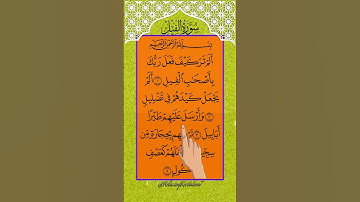 سورة الفيل
بسم الله الرحمن الرحيم
أَلَمْ تَرَ كَيْفَ فَعَلَ رَبُّكَ
بِأَصْحَابِ الْفِيلِ ۝١ أَلَمْ
يَجْعَلْ كَيْدَهُمْ فِي تَضْلِيلٍ
۝٢ وَأَرْسَلَ عَلَيْهِمْ طَيْرًا
أَبَابِيلَ ۝٣ بِحِجَارَةٍ مِّن
فَجَعَلَهُمْ كَعَصْفٍ
مَّأْكُولٍ ۝٥